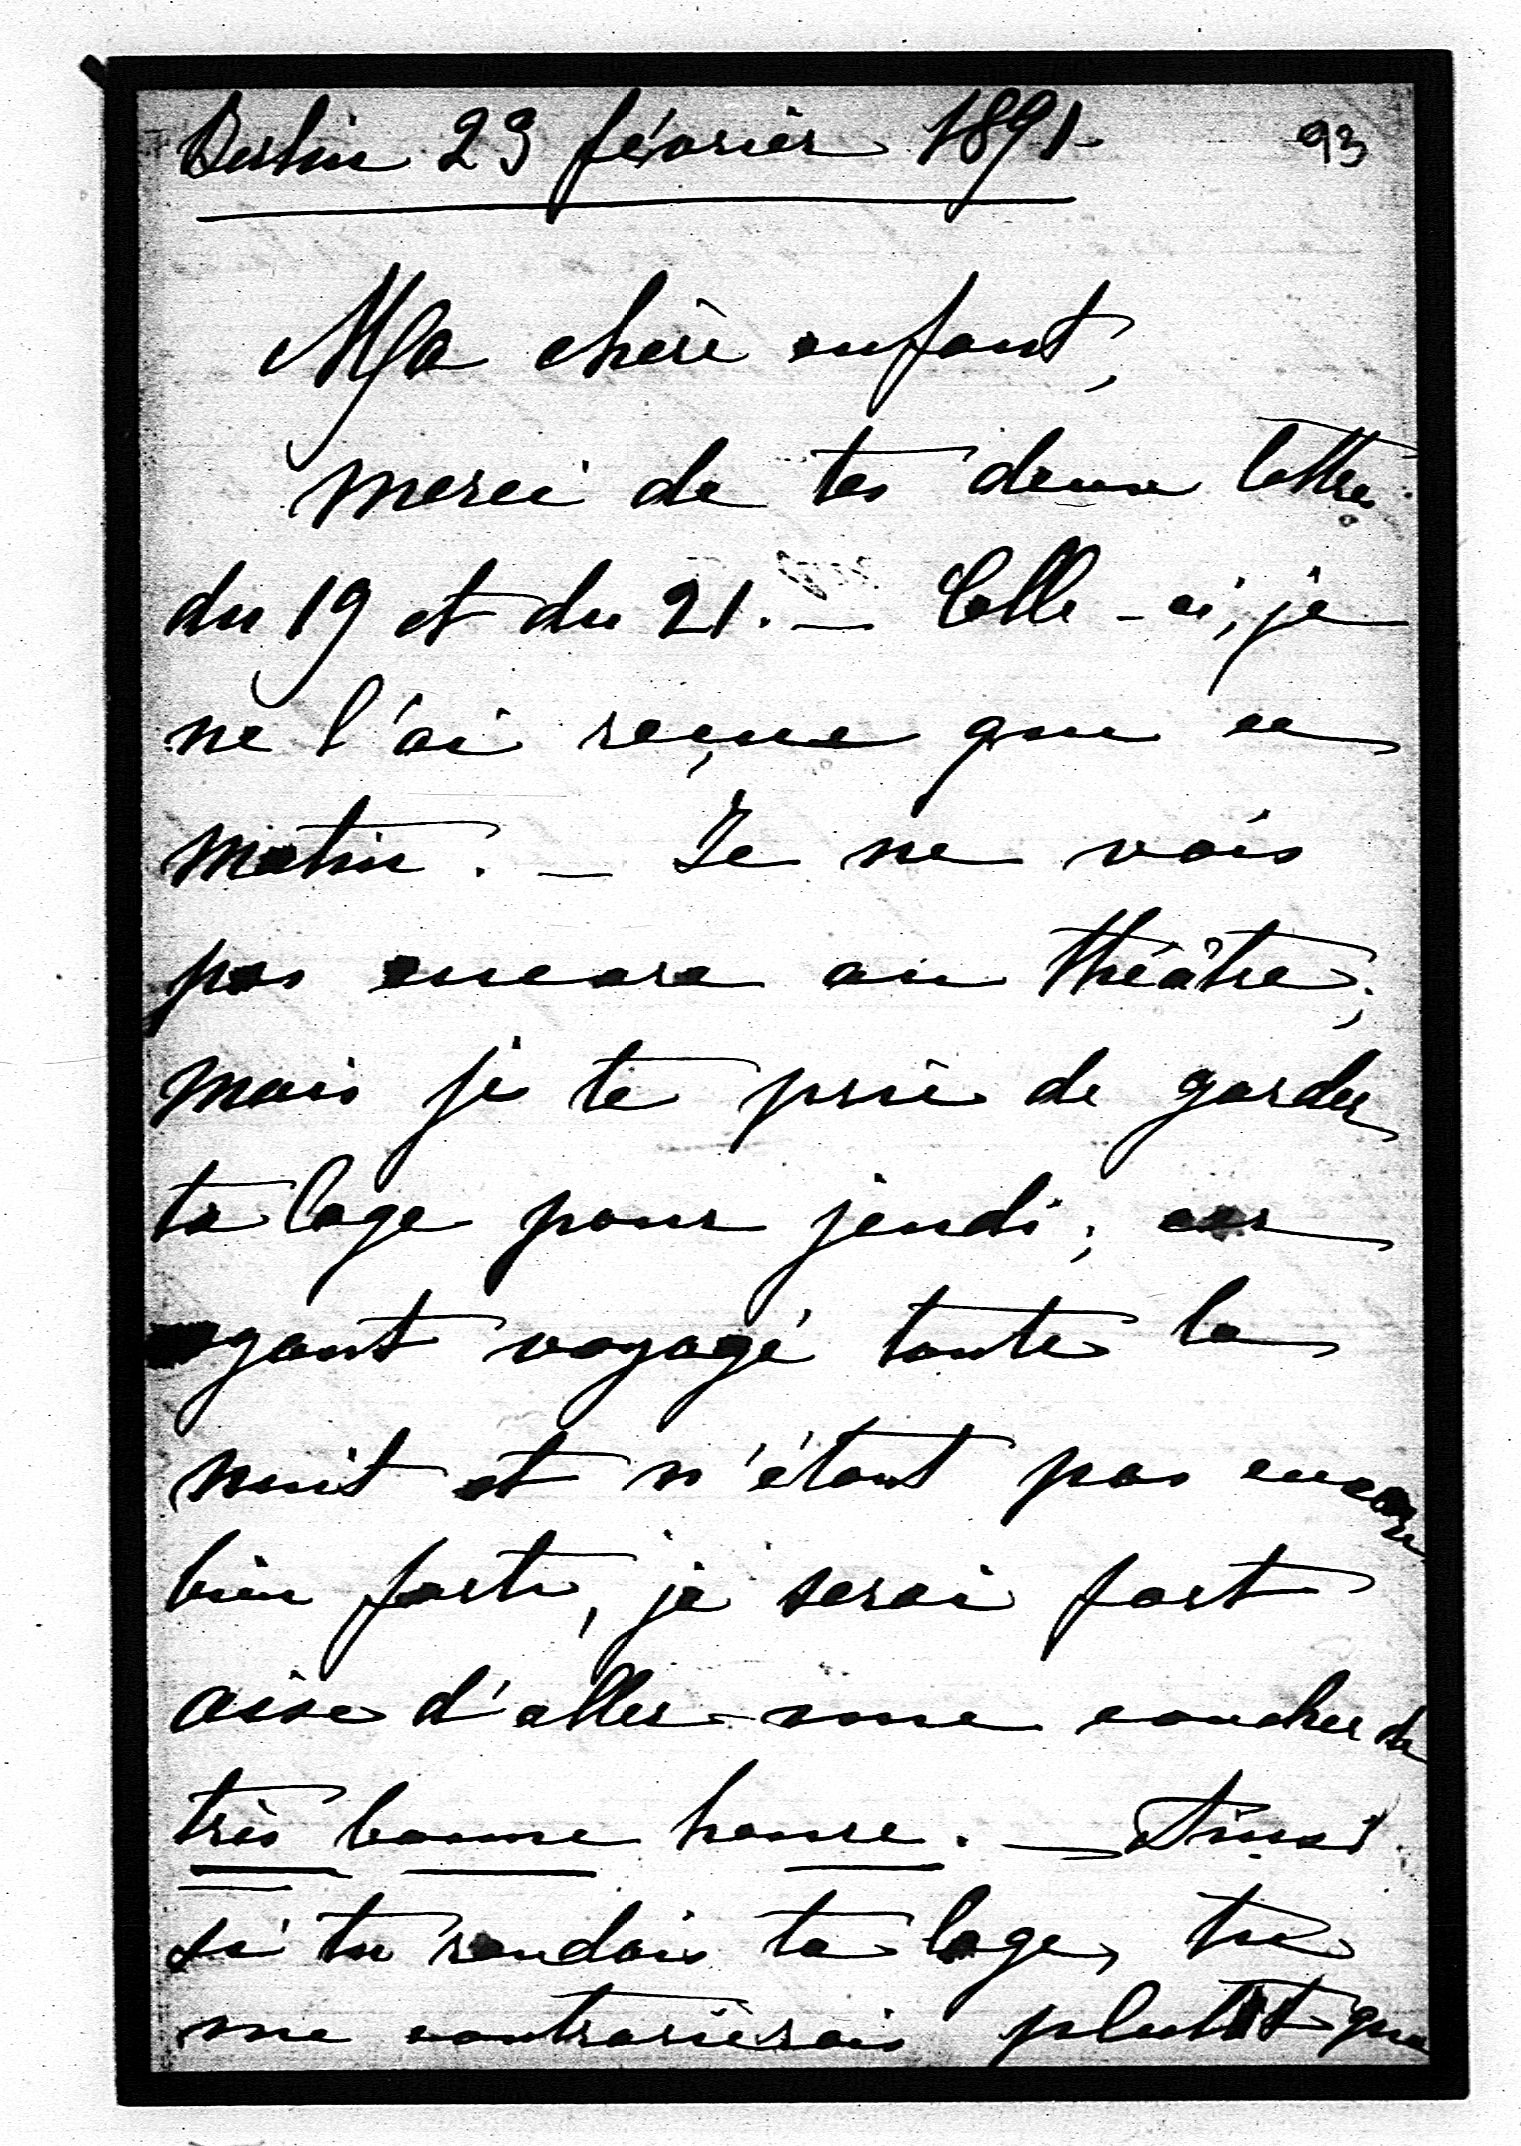 Berlin 23 février 1891. 93
Ma chère enfant,
merci de tes deux lettres
du 19 et du 21. — Celle-ci, je
ne l'ai reçue que ce
matin. — Je ne vais
pas encore au théâtre;
mais je te prie de garder
ta loge pour jeudi; car
ayant voyagé toute la
nuit et n'étant pas encore
bien forte, je serai fort
aise d'aller me coucher de
très bonne heure. — Ainsi
si tu rendais ta loge, tu
me contrarierais plutôt que